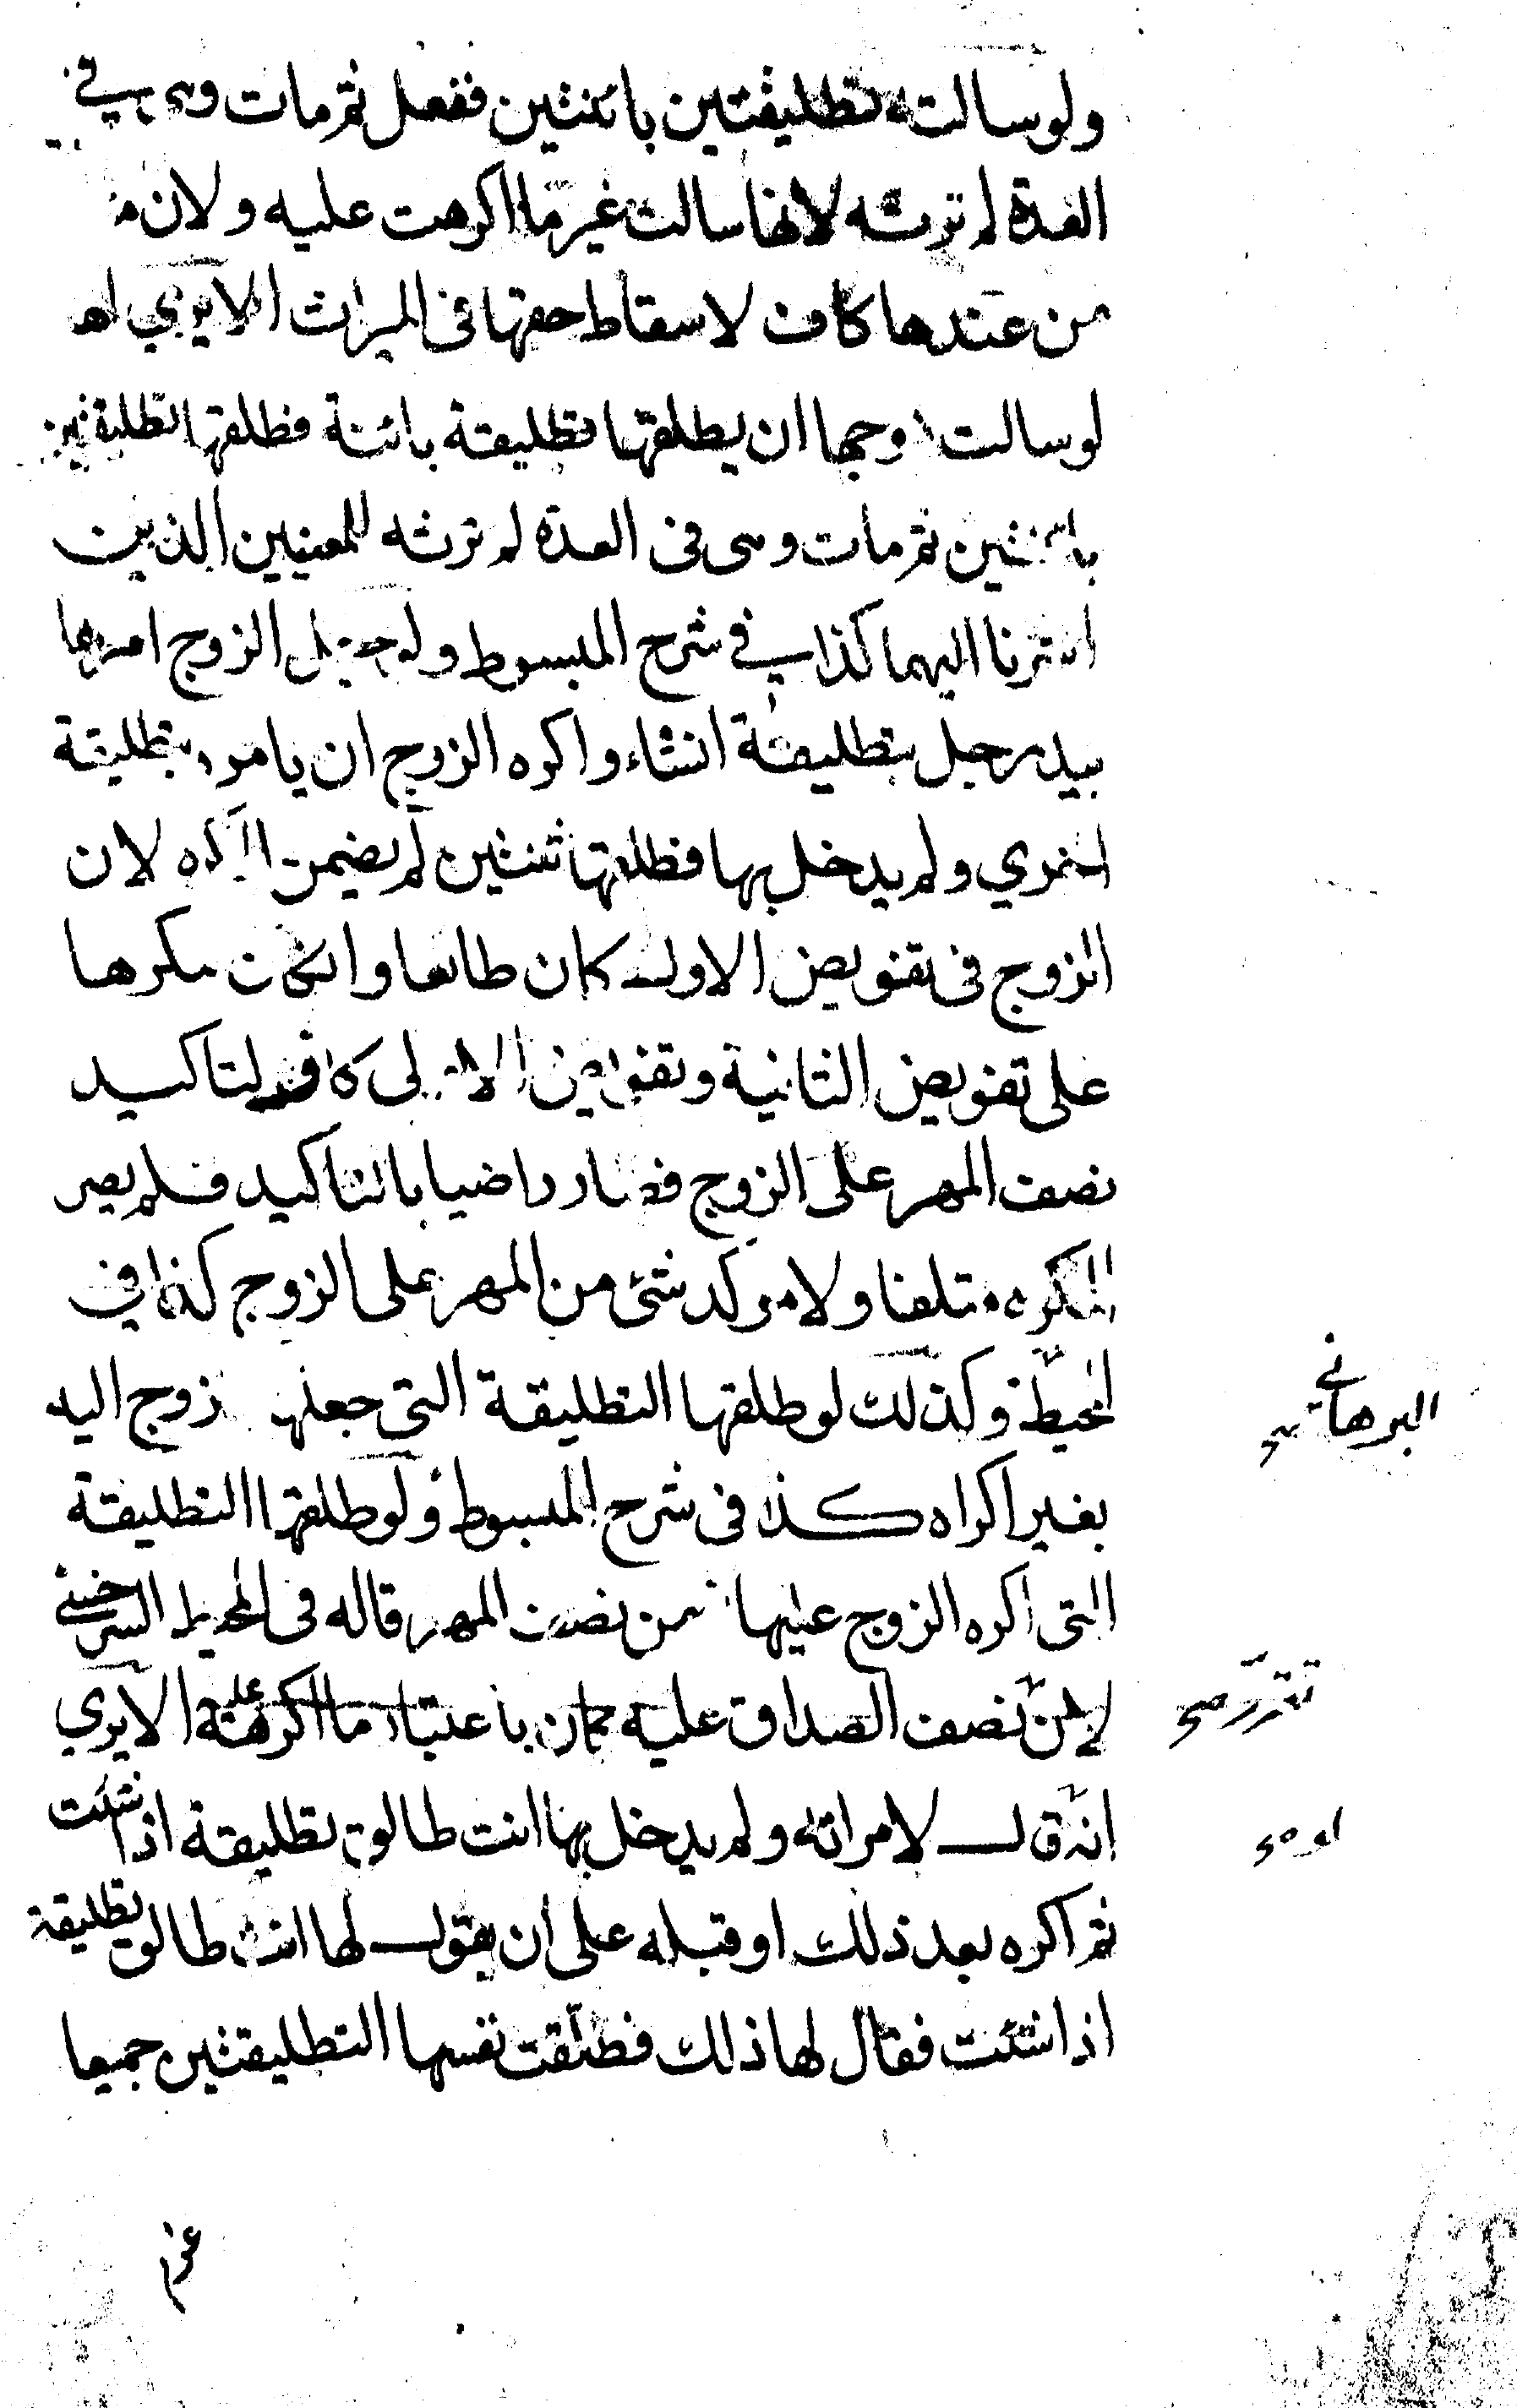 ولو سالته تطليقتين بائنتين ففعل ثم مات وهي في
العدة لم ترثه لانها سالت غير ما اكرهت عليه ولان ما
من عندها كاف لاسقاط حقها في الميراث الا يري انها
لو سالت زوجها ان يطلقها تطليقة بائنة فطلقها تطليقتين
بائنتين ثم مات وهي في العدة لم ترثه للمعنيين الذين
اشرنا اليهما كذا في شرح المبسوط ولو جعل الزوج امرها
بيد رجل بتطليقة ان شاء واكره الزوج ان يامره بتطليقة
اخري ولم يدخل بها فطلقها ثنتين لم يضمن المكره لان
الزوج في تفويض الاولى كان طائعا وان كان مكرها
على تفويض الثانية وتفويض الاولى كاف لتاكيد
نصف المهر على الزوج فصار راضيا بالتاكيد فلم يصر
المكره متلفا ولا موكد شئ من المهر على الزوج كذا في
المحيط وكذلك لو طلقها التطليقة التي جعلها الزوج اليه
البرهاني صح
بغير اكراه كذا في شرح المبسوط ولو طلقها التطليقة
التي اكره الزوج عليها ضمن نصف المهر قاله في المحيط السرخسي
لان نصف الصداق عليه كان باعتبار ما اكره عليه الا يري
تقرر صح
انه قال لامراته ولم يدخل بها انت طالق تطليقة اذا شئت
لو
ثم اكره بعد ذلك او قبله على ان يقول لها انت طالق تطليقة
اذا شئت فقال لها ذلك فطلقت نفسها التطليقتين جميعا
غرم